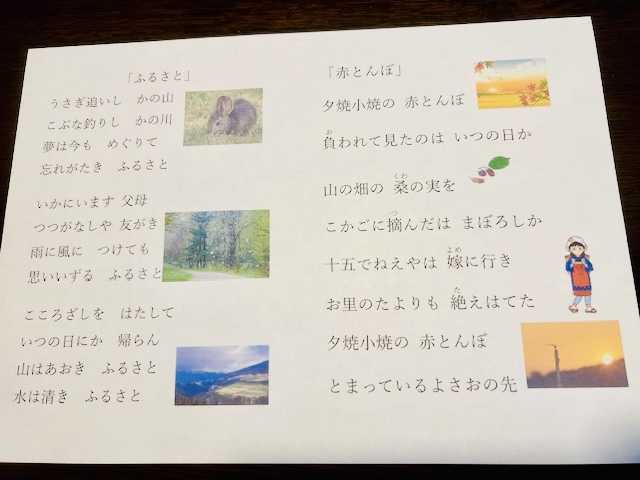 「ふるさと」
うさぎ追いし　かの山
こぶな釣りし　かの川
夢は今も　めぐりて
忘れがたき　ふるさと
いかにいます 父母
つつがなしや 友がき
雨に風に　つけても
思いいずる　ふるさと
こころざしを　はたして
いつの日にか　帰らん
山はあおき　ふるさと
水は清き　ふるさと
「赤とんぼ」
夕焼小焼の 赤とんぼ
負われて見たのは いつの日か
お
山の畑の 桑の実を
くわ
こかごに摘んだは まぼろしか
つ
十五でねえやは 嫁に行き
よめ
お里のたよりも 絶えはてた
た
夕焼小焼の 赤とんぼ
とまっているよさおの先